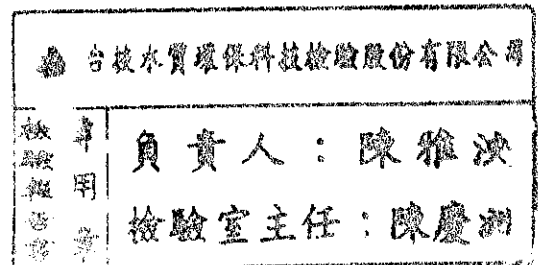 台技水質環保科技檢驗股份有限公司
檢驗報告
專用章
負責人：陳雅泱
檢驗室主任：陳慶洲